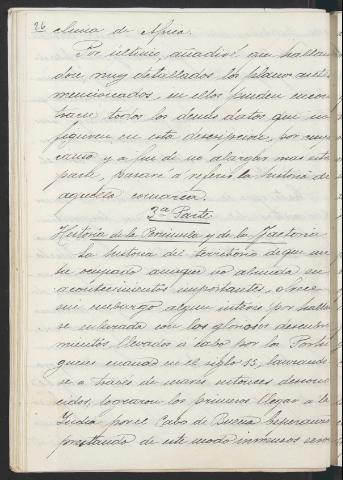 26
clima de Africa.
Por último, añadiré que hallan
dose muy detallados los planos antes
mencionados, en ellos pueden encon
trarse todos los demás datos que no
figuren en esta descripcion, por cuya
causa y a fin de no alargar mas esta
parte, pasaré a referir la historia de
aquella comarca.
3ª Parte
Historia de la Peninsula y de la Factoria
La historia del territorio de que me
he ocupado aunque no abunda en
acontecimientos importantes, ofrece
sin embargo algun interés por hallar
se enlazada con los gloriosos descubri
mientos llevados a cabo por los Portu
gueses cuando en el siglo 15, lanzando
se a traves de mares entonces descono
cidos, lograron los primeros llegar a la
India por el Cabo de Buena Esperanza
prestando de este modo inmensos servi